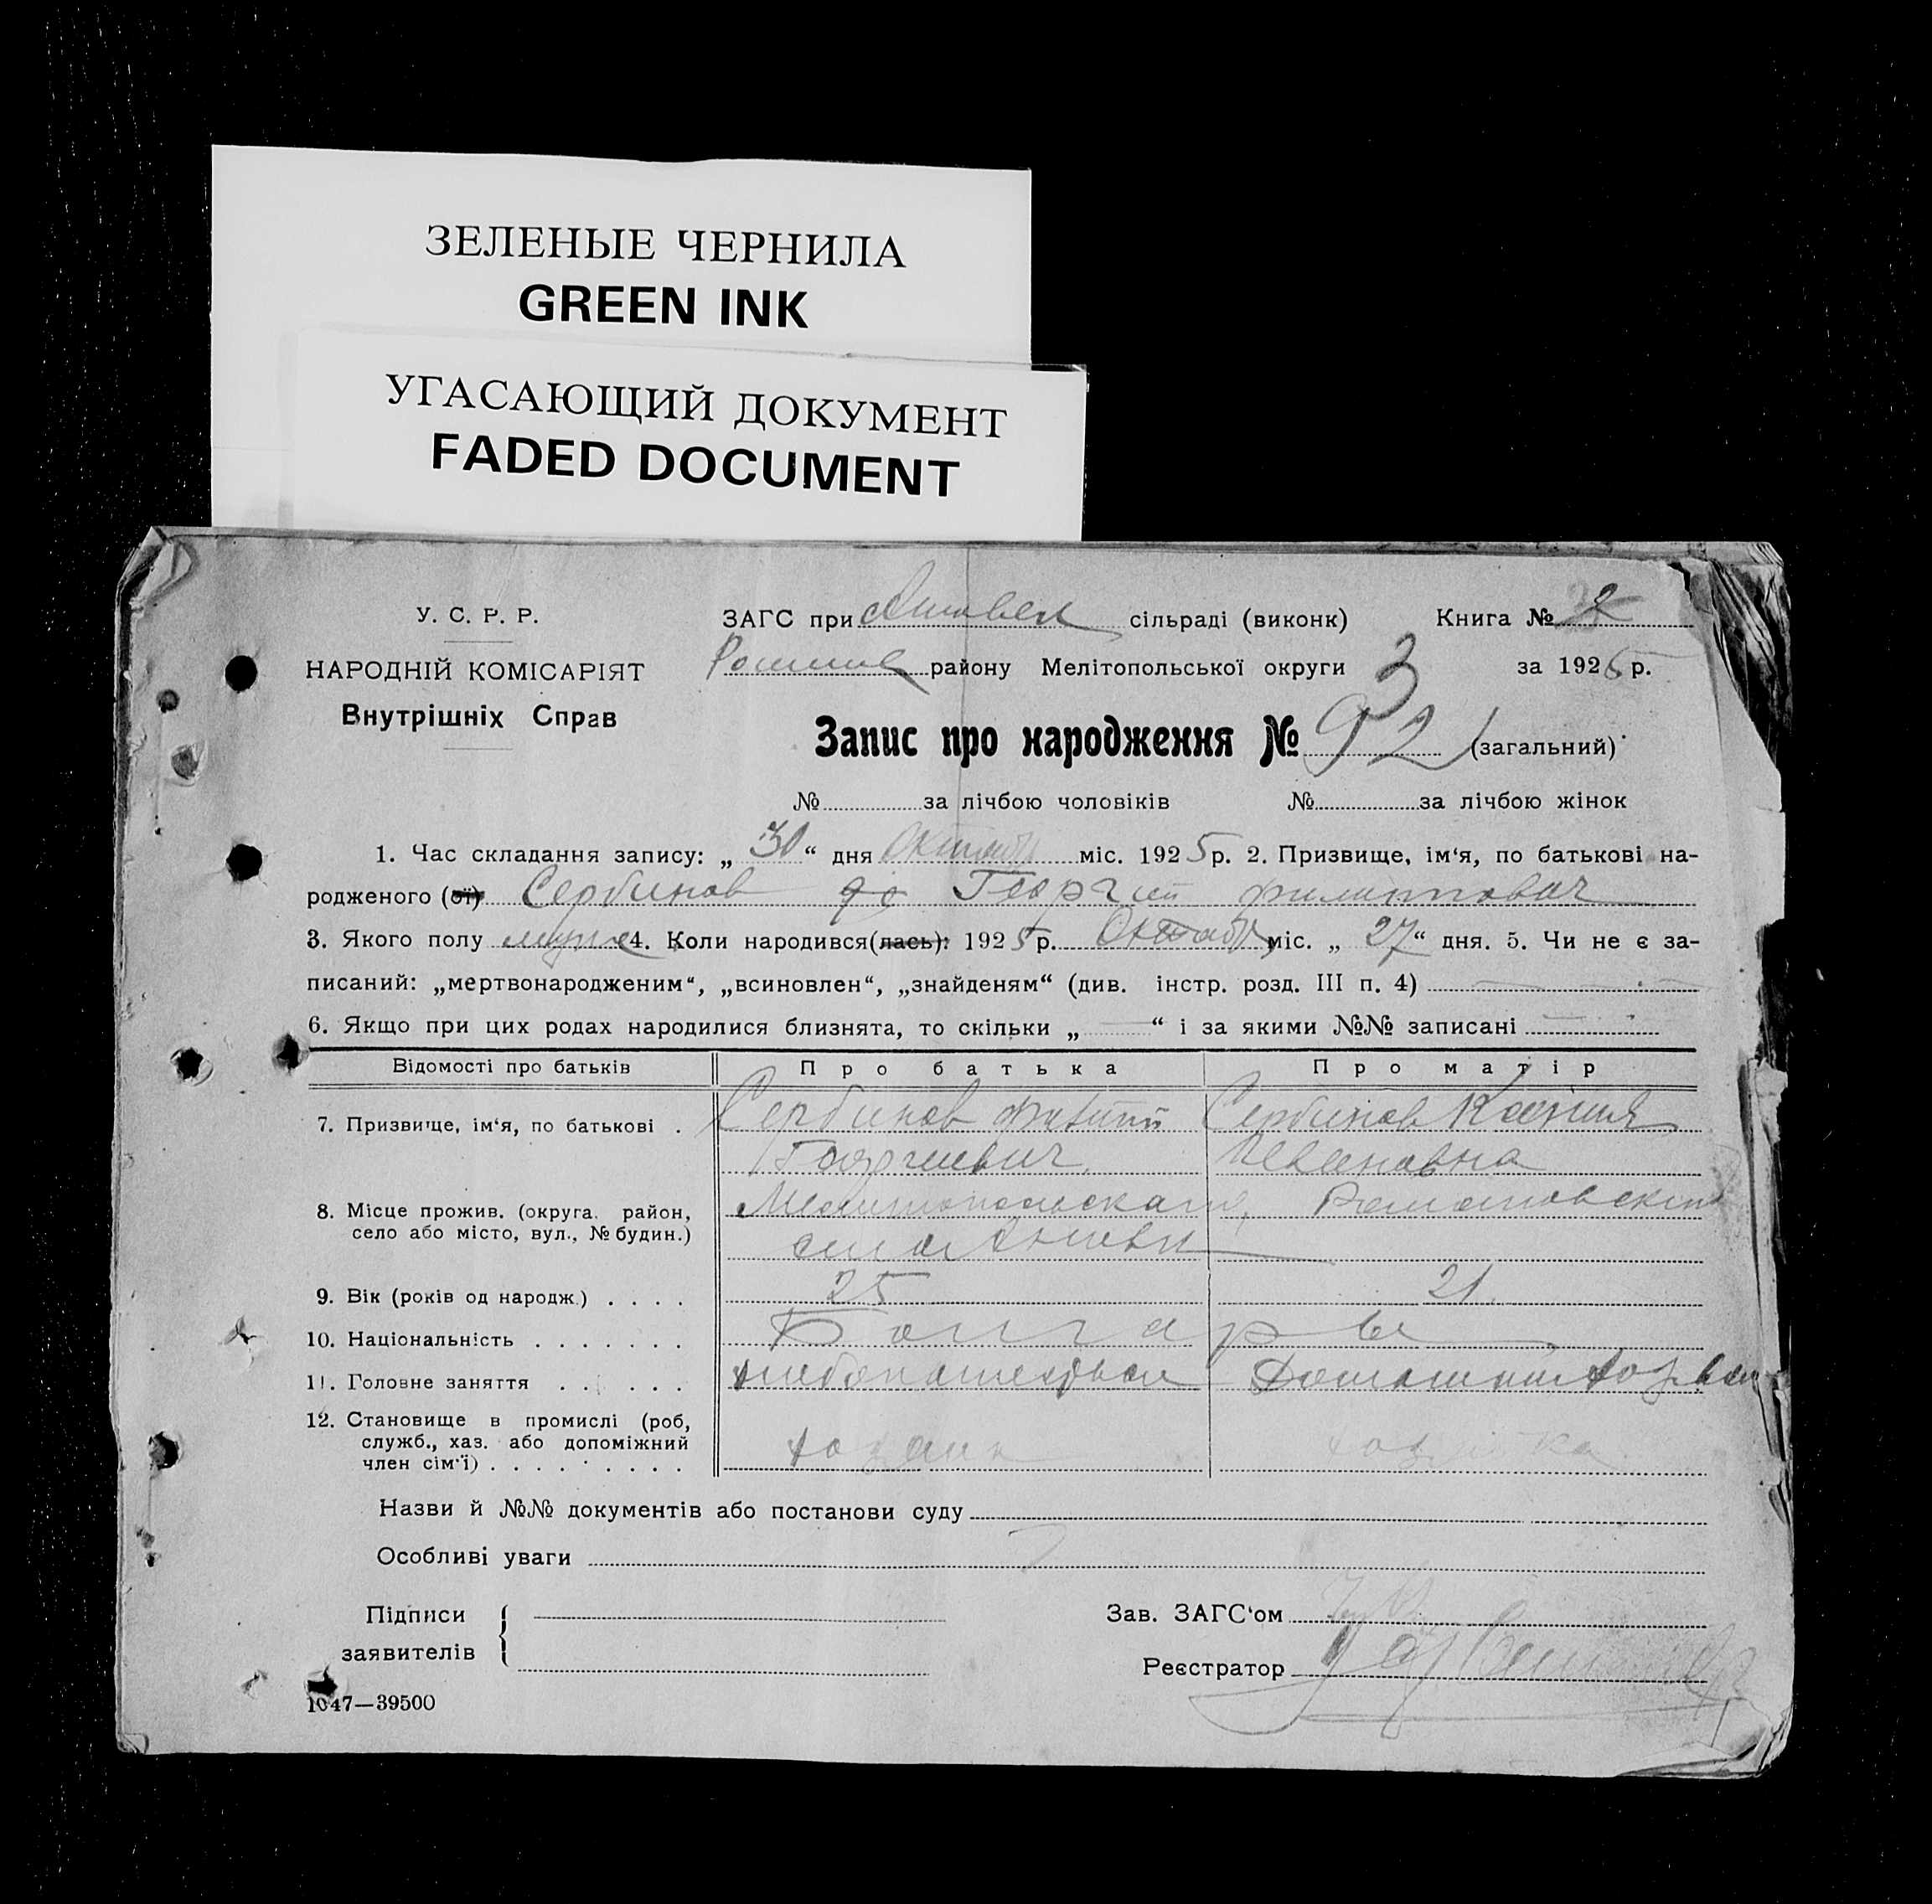 ЗЕЛЕНЫЕ ЧЕРНИЛА
GREEN INK
УГАСАЮЩИЙ ДОКУМЕНТ
FADED DOCUMENT
У. С. Р. Р.
НАРОДНІЙ КОМІСАРІЯТ
Внутрішніх Справ
ЗАГС при сільраді (виконк) Книга №
району Мелітопольської округи за 1925 р.
3
Запис про народження № 92 (загальний)
№ за лічбою чоловіків № за лічбою жінок
1. Час складання запису: „ 30 “ дня Октября міс. 1925 р. 2. Призвище, ім‘я, по батькові на-
родженого (ої) Сербинов Георгий Филиппович
3. Якого полу муж 4. Коли народився(лась): 1925 р. Октября міс. „ 27 “ дня. 5. Чи не є за-
писаний: „мертвонародженим“, „всиновлен“, „знайденям“ (див. інстр. розд. III п. 4)
6. Якщо при цих родах народилися близнята, то скільки „ — “ і за якими №№ записані
Відомості про батьків Про батька Про матір
7. Призвище, ім‘я, по батькові . Сербинов Филипп Сербинов Ксения
Георгиевич Ивановна
8. Місце прожив. (округа. район, Мелитопольская, Романовский
село або місто, вул., № будин.) село
9. Вік (років од народж.) . . . . 25 21.
10. Національність . . . . . . . Болгары
11. Головне заняття . . . . . . хлебопашество Домашнее хозяй
12. Становище в промислі (роб,
служб., хаз. або допоміжний хозяин хозяйка
член сім‘ї) . . . . . . . . .
Назви й №№ документів або постанови суду
Особливі уваги
Підписи
заявителів
Зав. ЗАГС‘ом
Реєстратор
1047—39500